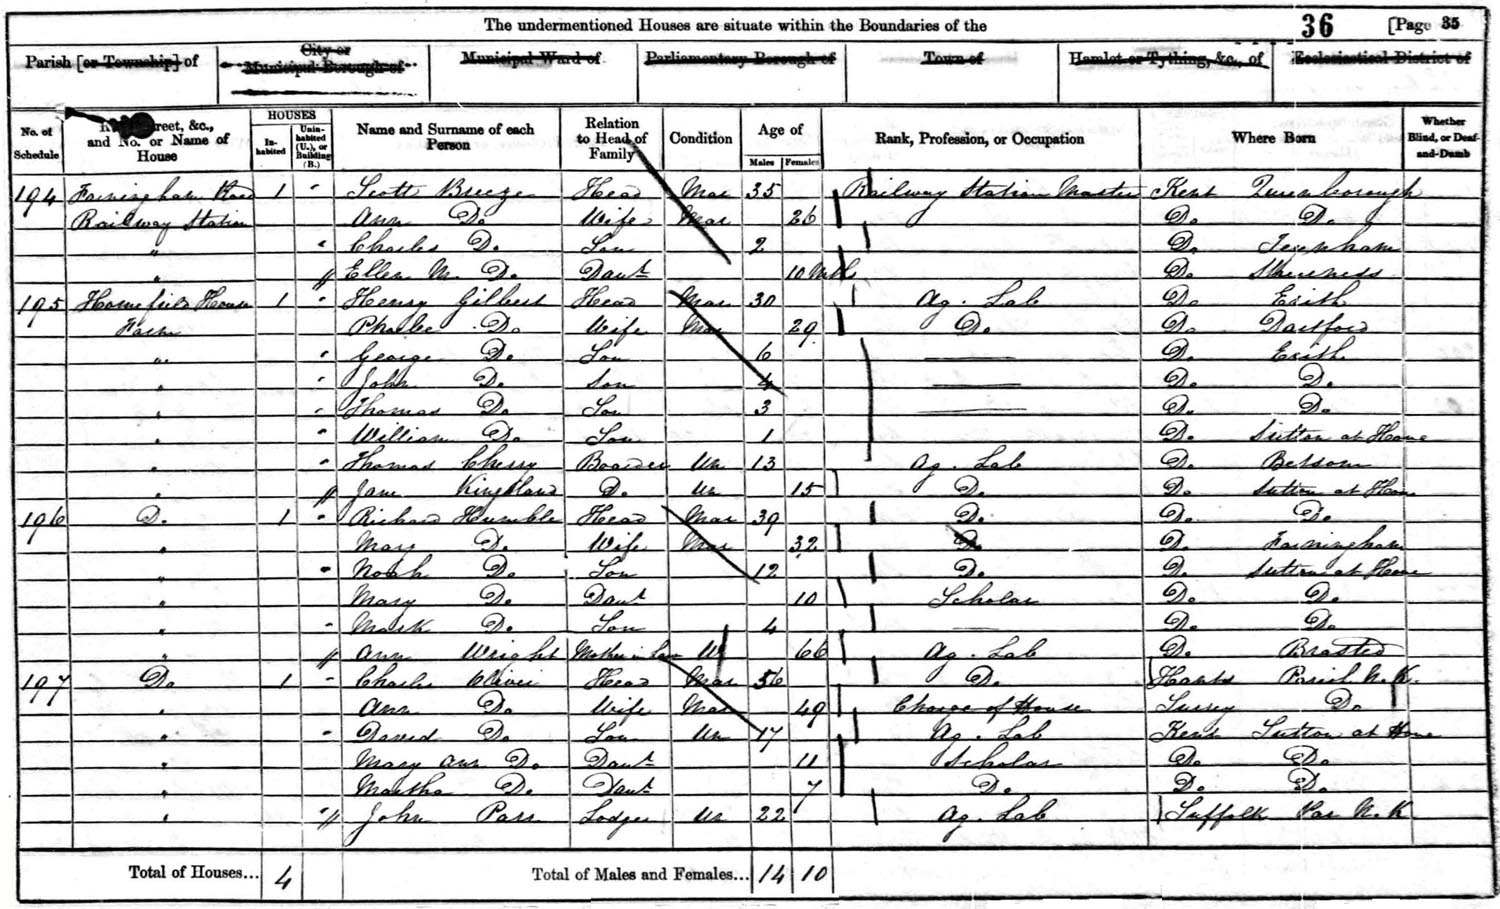 The undermentioned Houses are situate within the Boundaries of the 36 [Page 35
Parish [or Township] of City or Municipal Borough of Municipal Ward of Parliamentary Borough of Town of Hamlet or Tything, &c., of Ecclesiastical District of
No. of Schedule Street, &c., and No. or Name of House HOUSES Inhabited Uninhabited (U.), or Building (B.) Name and Surname of each Person Relation to Head of Family Condition Age of Males Females Rank, Profession, or Occupation Where Born Whether Blind, or Deaf-and-Dumb
194 Farningham Road 1 Scott Breeze Head Mar 35 Railway Station Master Kent Queenborough
Railway Station Ann Do Wife Mar 26 Do Do
" Charles Do Son 2 Do
" Ellen M. Do Daut 10 Mths Do Sheerness
195 Homefield House 1 Henry Gilbert Head Mar 30 Ag. Lab Do Erith
Farm Phoebe Do Wife Mar 29 Do Do Dartford
" George Do Son 6 Do Erith
" John Do Son 4 Do Do
" Thomas Do Son 3 Do Do
" William Do Son 1 Do Sutton at Hone
" Thomas Cherry Boarder Un 13 Ag. Lab Do Betsom
" Jane Kingsland Do Un 15 Do Do Sutton at Hone
196 Do 1 Richard Humble Head Mar 39 Do Do Do
" Mary Do Wife Mar 32 Do Do Farningham
" Noah Do Son 12 Do Do Sutton at Hone
" Mary Do Daut 10 Scholar Do Do
" Mark Do Son 4 Do Do
" Ann Wright Mother in Law W 66 Ag. Lab Do Brasted
197 Do 1 Charles Oliver Head Mar 56 Do Hants Parish N.K.
" Ann Do Wife Mar 49 Charge of House Surrey Do
" David Do Son Un 17 Ag. Lab Kent Sutton at Hone
" Mary Ann Do Daut 11 Scholar Do Do
" Martha Do Daut 7 Do Do Do
" John Parr Lodger Un 22 Ag. Lab Suffolk Par N.K.
Total of Houses... 4 Total of Males and Females... 14 10